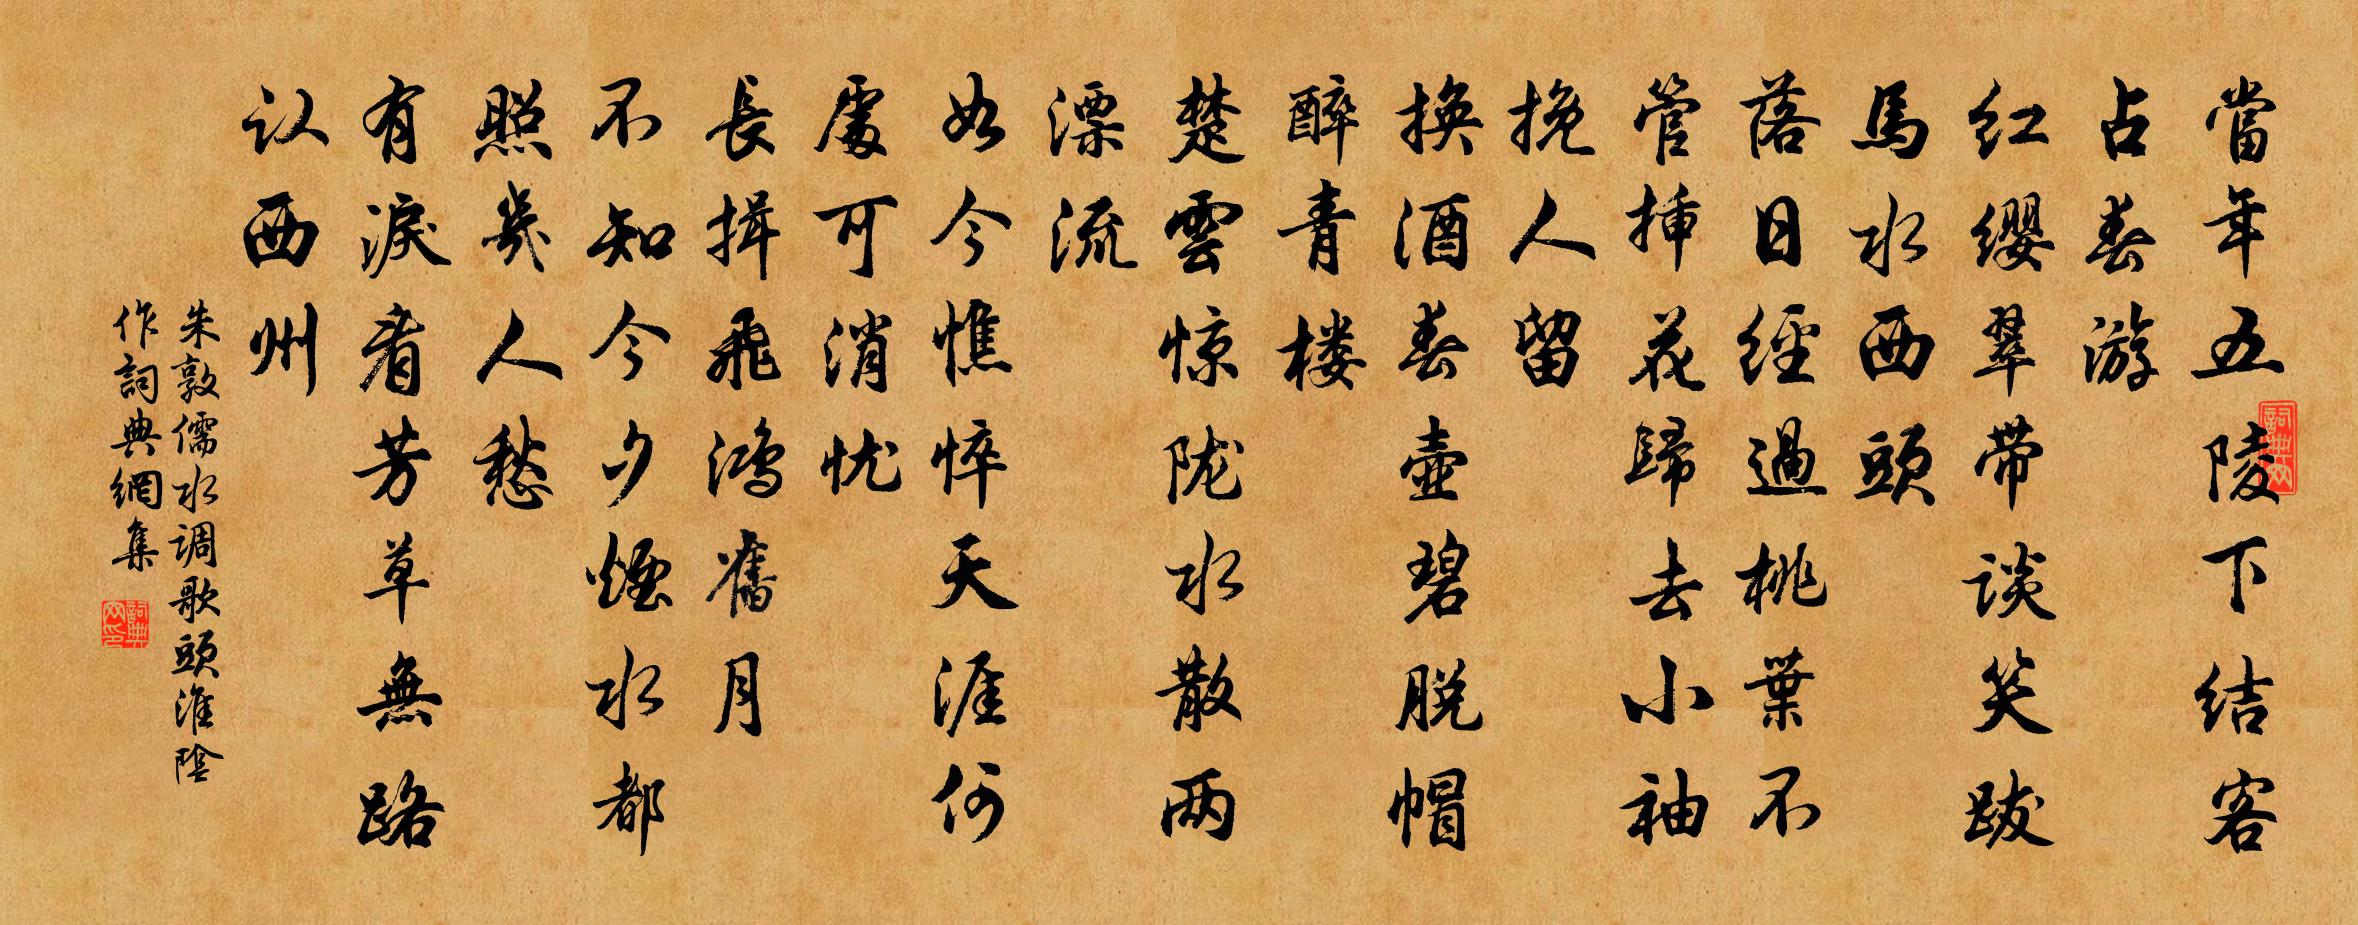 當年五陵下结客
占春游
红缨翠带谈笑跋
馬水西頭
落日经過桃葉不
管挿花歸去小袖
挽人留
换酒春壶碧脱帽
醉青楼
楚雲惊陇水散两
漂流
如今憔悴天涯何
處可消忧
長揖飛鸿舊月
不知今夕煙水都
照幾人愁
有淚看芳草無路
认西州
朱敦儒水调歌頭淮陰
作詞典網集
詞典网
詞典网印